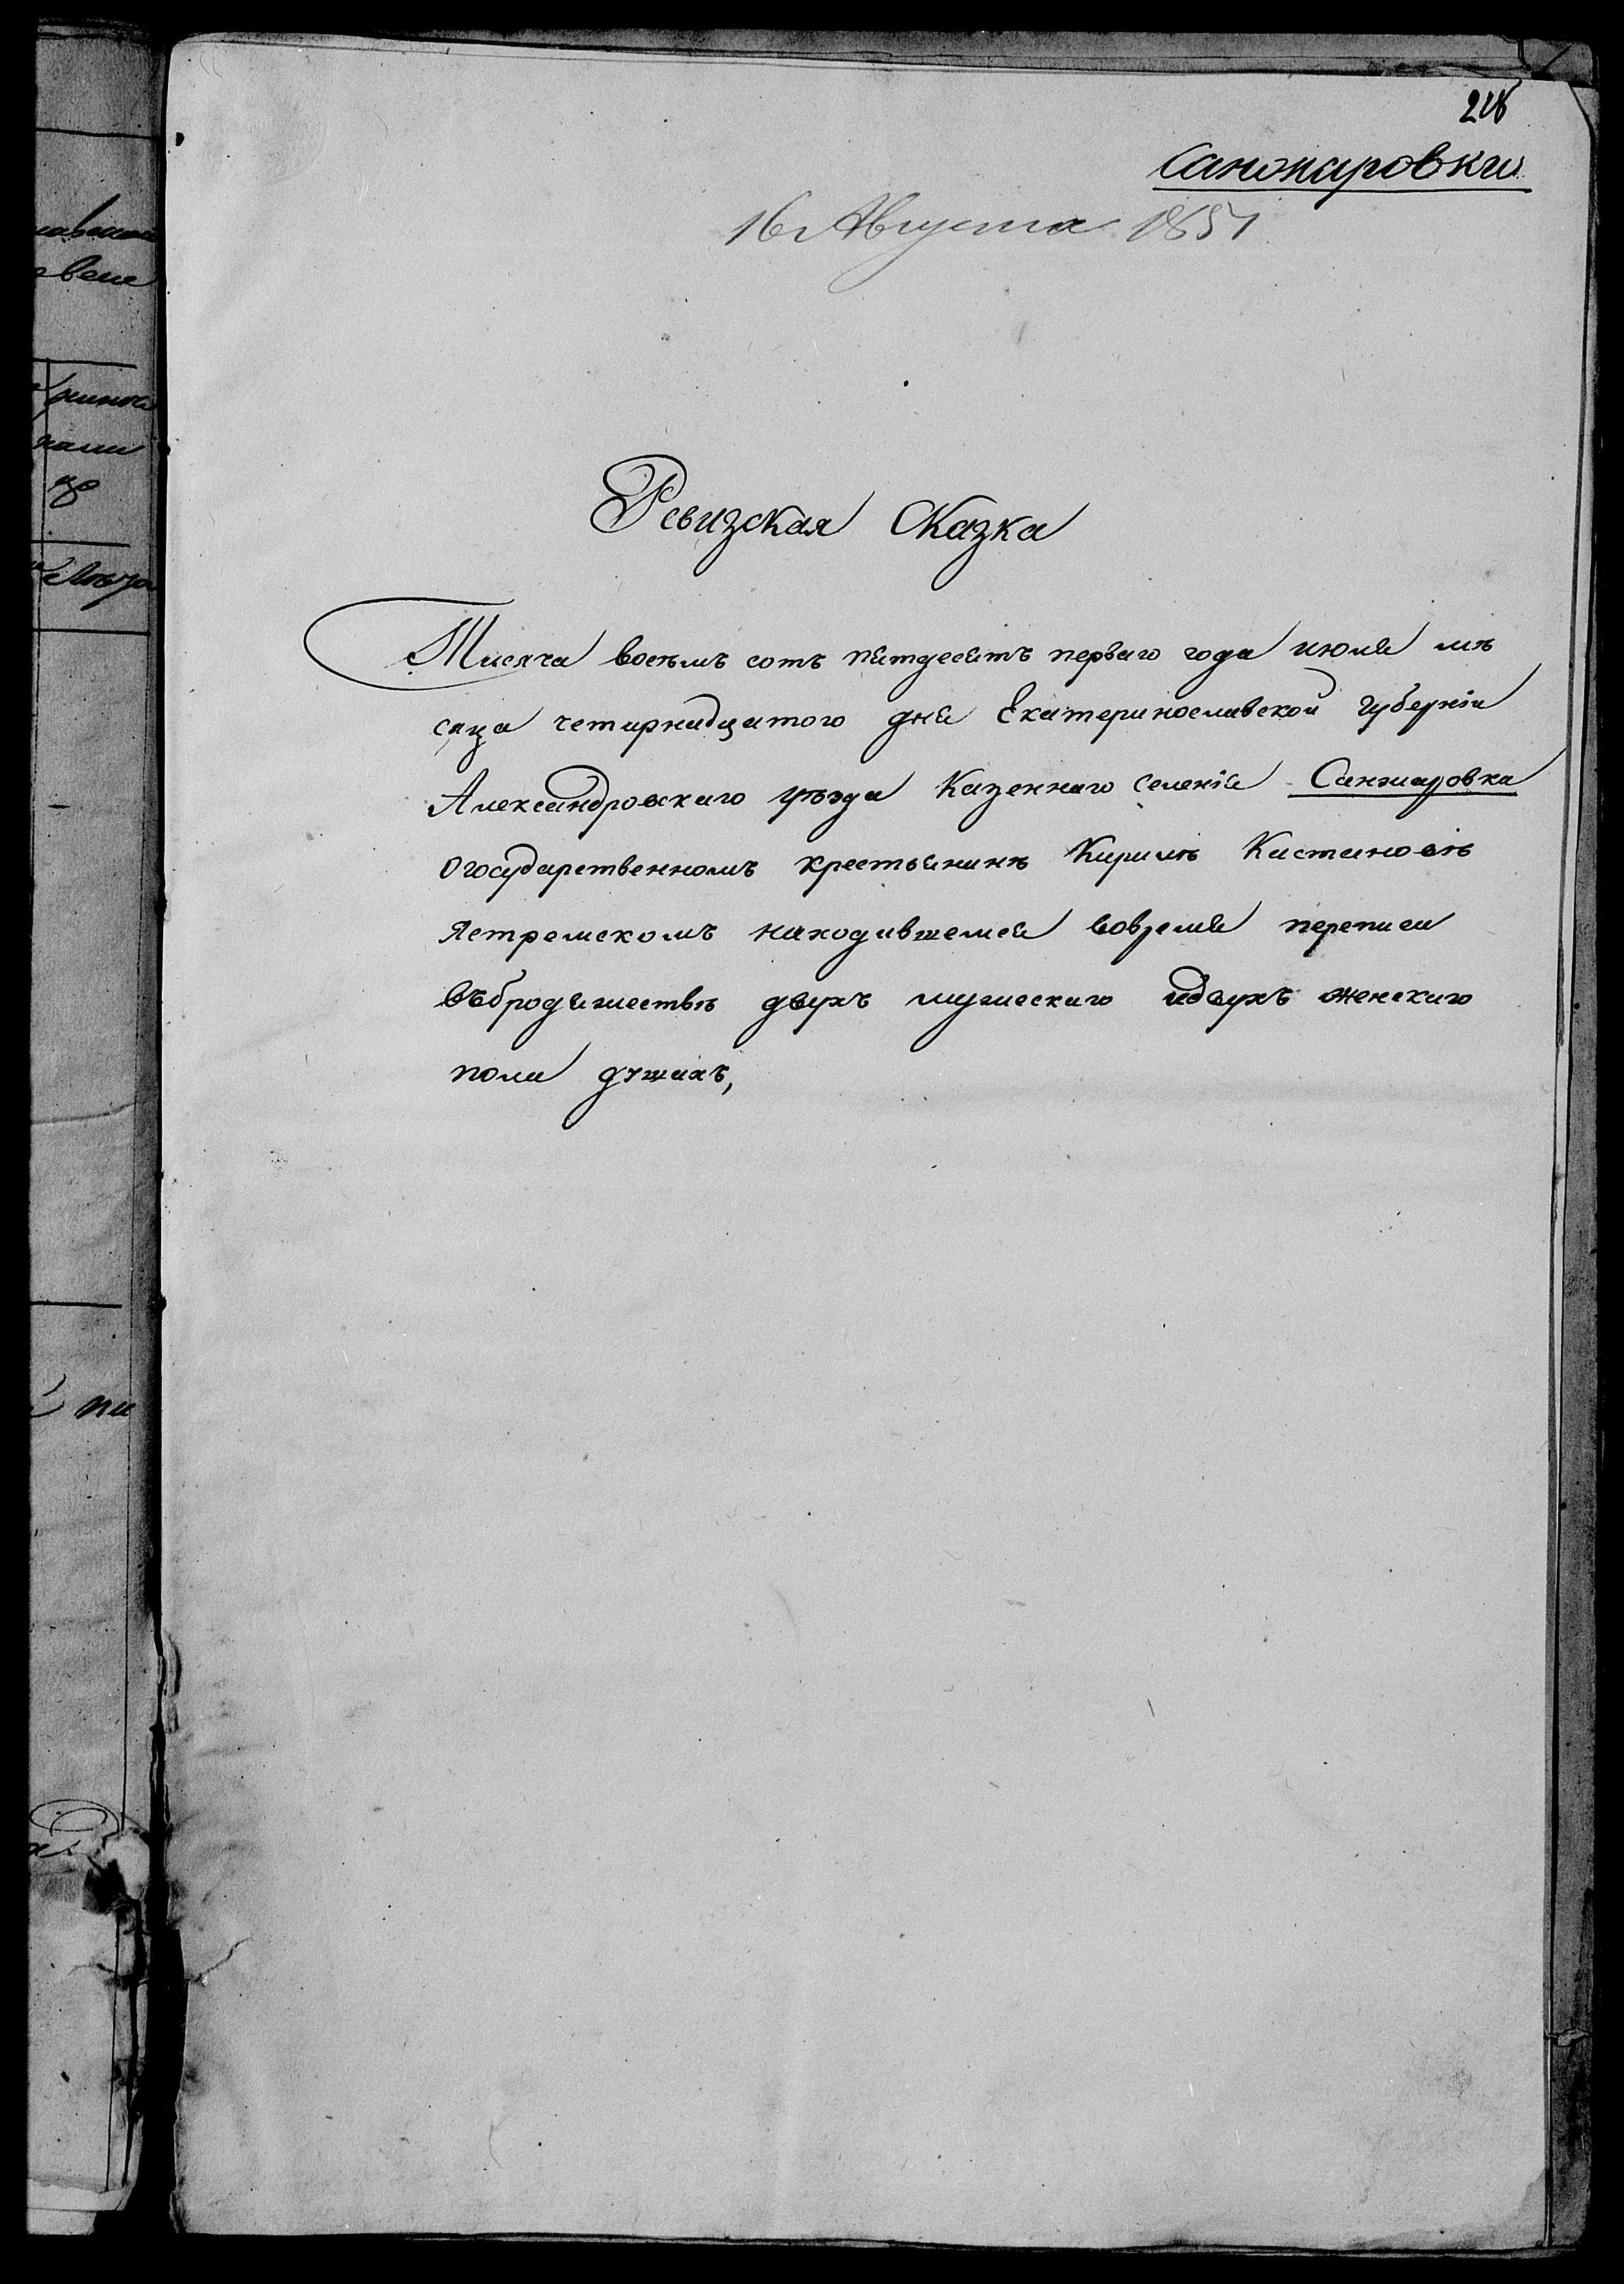 Санжаровки
16 Августа 1851
Ревизская Сказка
Тисяча восемъ сотъ пятдесятъ перваго года июля мѣ
сяца четирнадцатого дня Екатеринославской Губерніи
Александровскаго уѣзда Казеннаго селенія Санжаровка
огосударственномъ крестьянинѣ Кирилѣ Кастановѣ
Ястремскомъ находившемся вовремя переписи
въбродяжествѣ двухъ мужескаго идвухъ женскаго
пола душахъ,